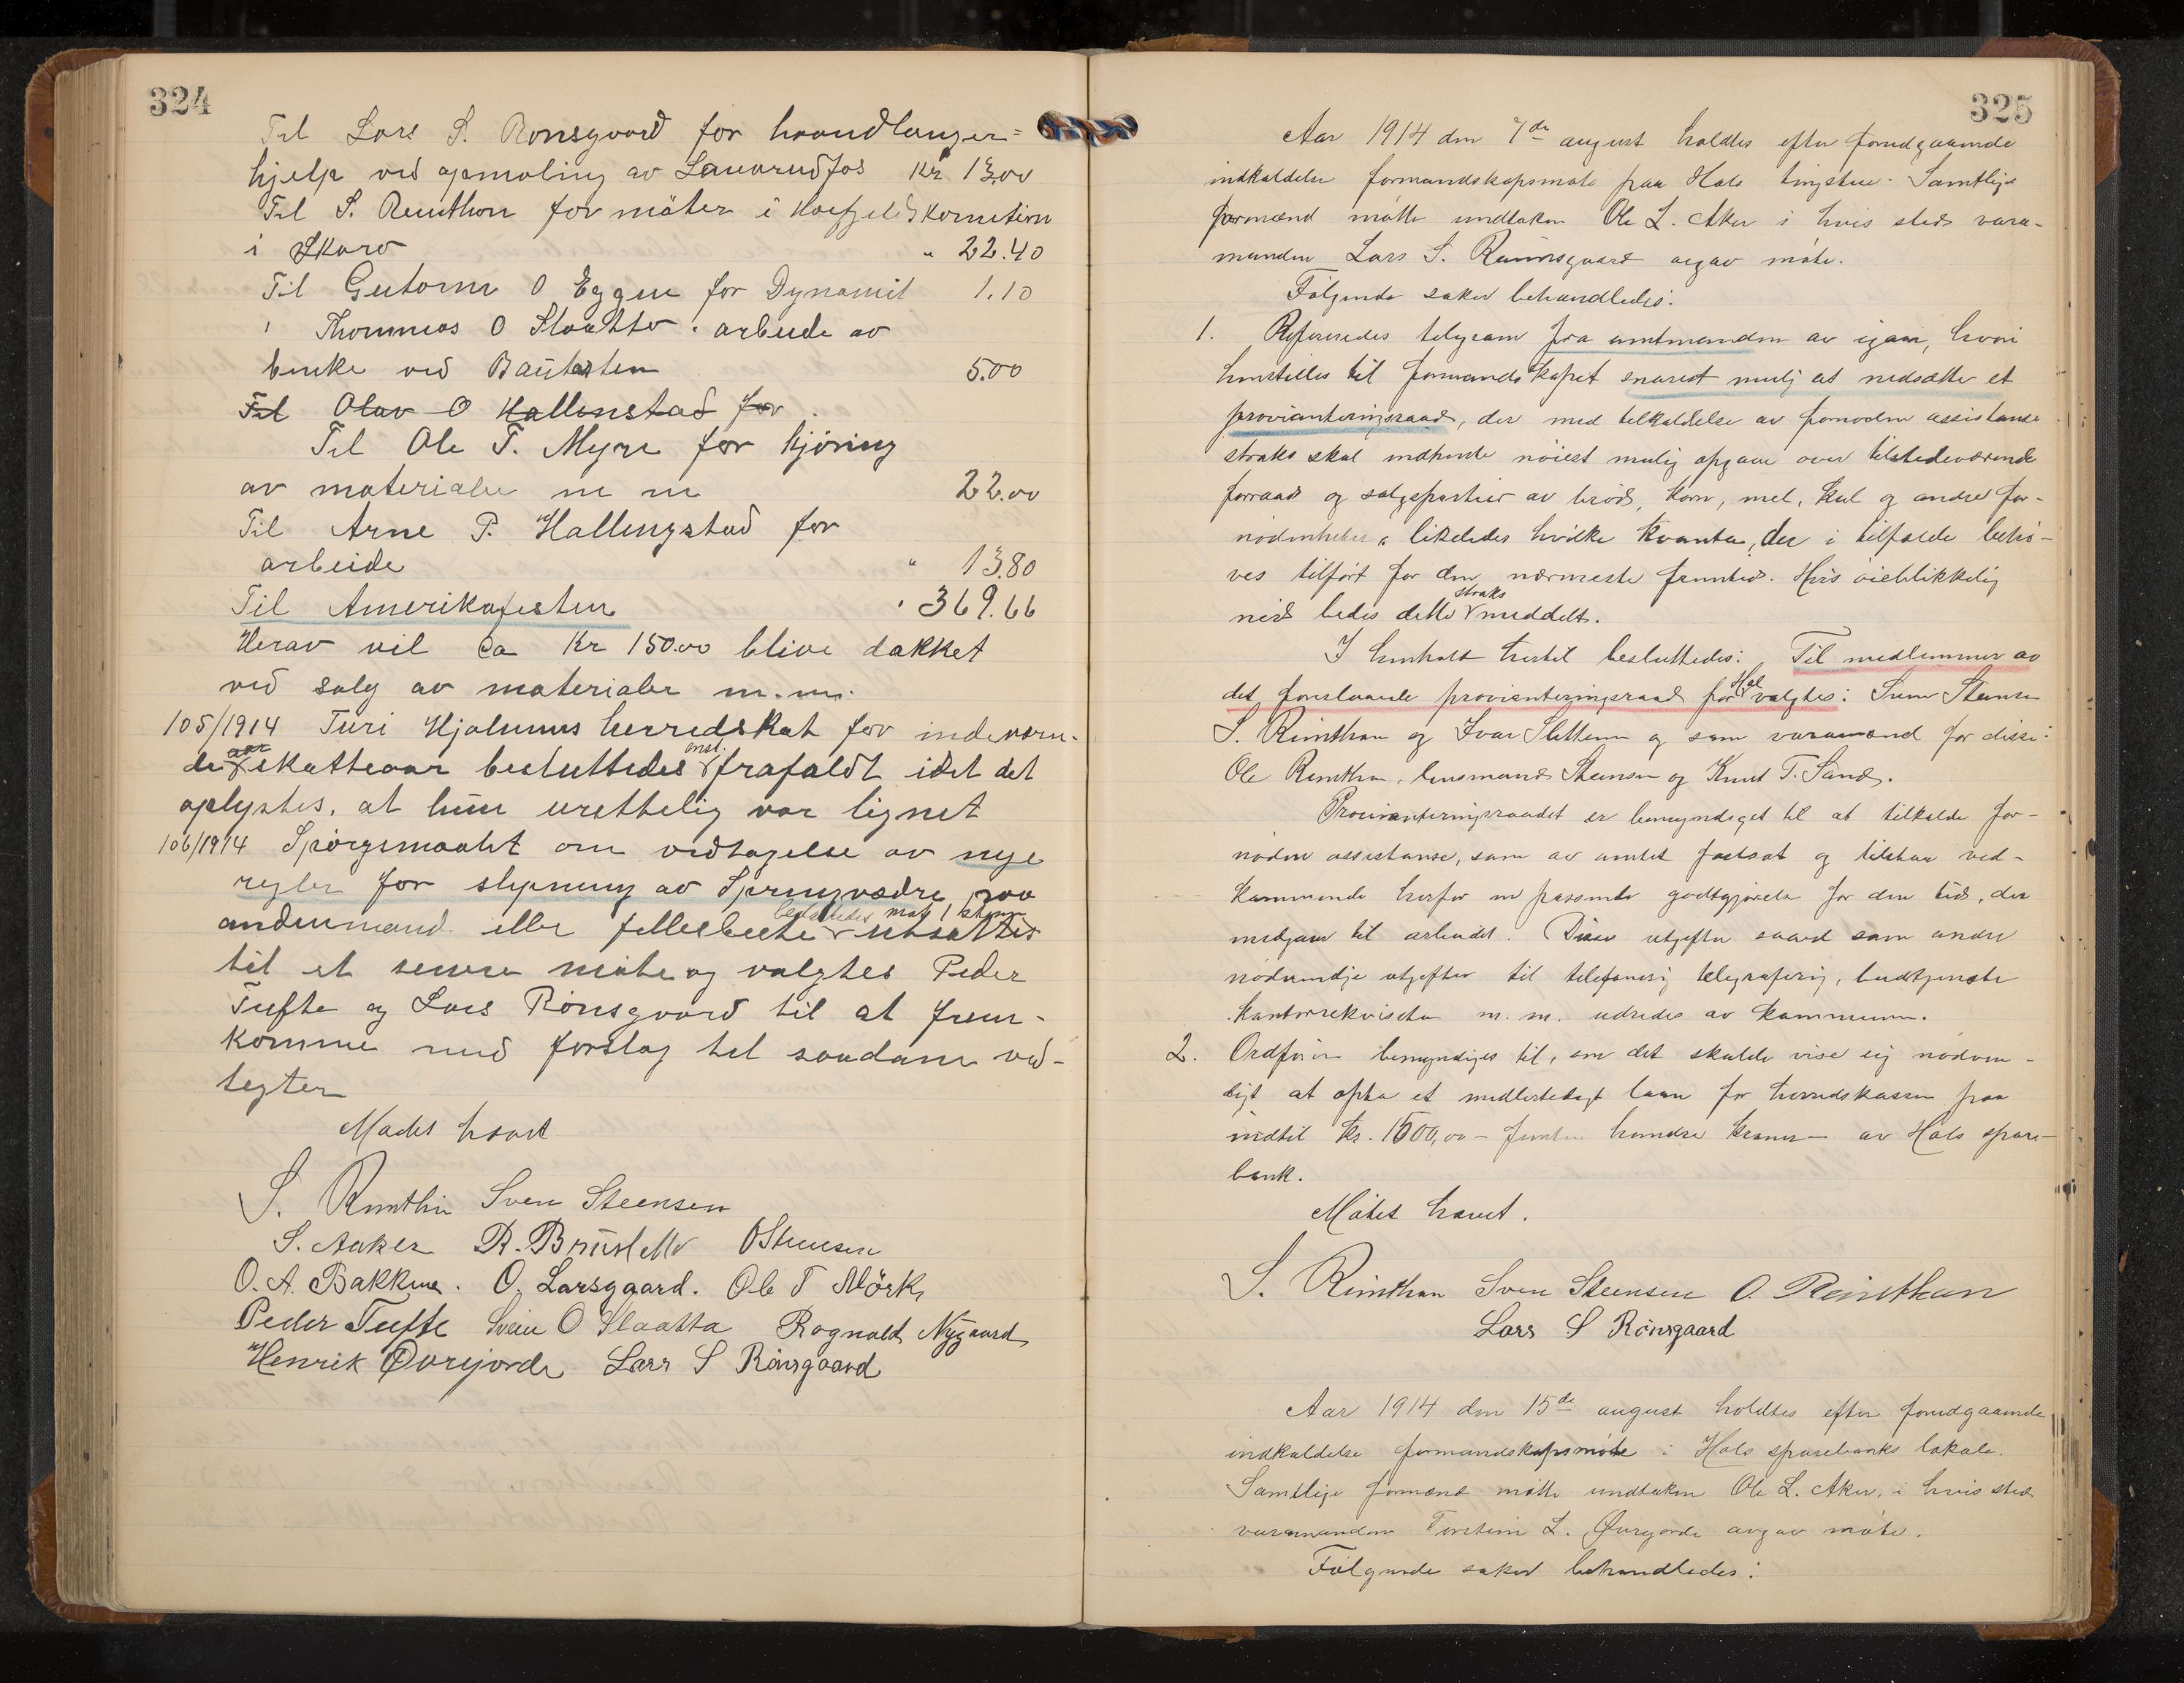 324
Til Lars S. Rönsgaard for haandlanger=
hjelp ved opmaling av Lauvrudfos Kr 13,00
Til S. Reinthon for möter i Höifjeldskometeen
i Skarv " 22.40
Til Gutorm O Eggen for Dynamit 1.10
" Thommas O Slaatto " arbeide av
benke ved Bautasten 5.00
Til Olav O Hallenstad for
Til Ole T. Myre for kjöring
av materialer m m 22.00
Til Arne P. Hallingstad for
arbeide " 13.80
Til Amerikafesten " 369.66
Herav vil ca Kr 150.00 blive dækket
ved salg av materialer m.m.
105/1914 Turi Hjalmuns herredskat for indeværen-
de aar skatteaar besluttedes enst. frafaldt idet det
oplystes, at hun urettelig var lignet
106/1914 Spörgsmaalet om vedtagelse av nye
regler for slepning av Springvædre paa
andenmand eller fellesbeite besluttedes mot 1 stem utsættes
til et senere möte og valgtes Peder
Tufte og Lars Rönsgaard til at frem-
komme med forslag til saadane ved-
tegter
Mödet hævet
S. Reinthon Sven Steensen
S. Aaker R. Brusletto O Steensen
O. A. Bakkene. O. Larsgaard. Ole T Mörk
Peder Tufte Svein O Slaatta Ragnvald Nygaard
Henrik Øvrejorde Lars S Rönsgaard
325
Aar 1914 den 7de august holdtes efter forudgaaende
indkaldelse formandskapsmöte paa Hols tingstue. Samtlige
formænd mötte undtaken Ole L. Aker i hvis sted vara-
manden Lars S. Rönsgaard avgav möte.
Fölgende saker behandledes:
1. Refereredes telegram fra amtmanden av igaar, hvori
henstilles til formandskapet snarest mulig at nedsætte et
provianteringsraad, der med tilkaldelse av fornöden assistanse
straks skal indhente nöiest mulig opgave over tilstedeværende
forraad og salgspartier av bröd, korn, mel, kul og andre for-
nödenheter, likeledes hvilke kvanta, der i tilfælde behö-
ves tilfört for den nærmeste fremtid. Hvis öieblikkelig
nöd bedes dette straks meddelt.
I henhold hertil besluttedes: Til medlemmer av
det foreslaaede provianteringsraad for Hol valgtes: Sven Steensen
S. Reinthon og Ivar Sletten og som varamænd for disse:
Ole Reinthon, lensmand Steensen og Knut T. Sand.
Provianteringsraadet er bemyndiget til at tilkalde for-
nöden assistanse, som av amtet fastsat og tilstaa ved-
kommende herfor en passende godtgjörelse for den tid, der
medgaar til arbeidet. Disse utgifter saavel som andre
nödvendige utgifter til telefonering telegrafering, budtjeneste
kontorrekvisita m. m. utredes av kommunen.
2. Ordföreren bemyndiges til, om det skulde vise sig nödven-
digt at opta et midlertidigt laan for herredskassen paa
indtil kr. 1500,00 – femten hundre kroner – av Hols spare-
bank.
Mötet hævet.
S. Reinthon Sven Steensen O. Reinthon
Lars S Rönsgaard
Aar 1914 den 15de august holdtes efter forudgaaende
indkaldelse formandskapsmöte i Hols sparebanks lokale.
Samtlige formænd mötte undtaken Ole L. Aker, i hvis sted
varamanden Torstein L. Øvrejorde avgav möte.
Fölgende saker behandledes: